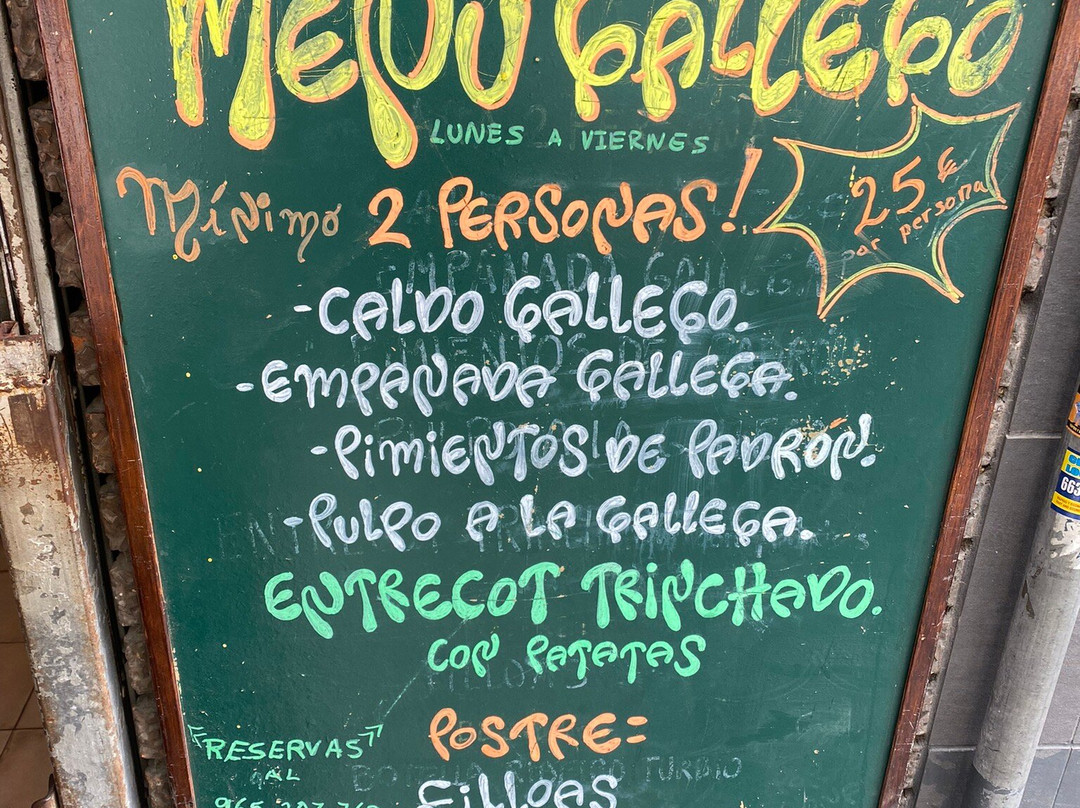 MENU GALLEGO
LUNES A VIERNES
Mínimo 2 PERSONAS!
25€
por persona
-CALDO GALLEGO.
-EMPANADA GALLEGA.
-PIMIENTOS DE PADRÓN.
-PULPO A LA GALLEGA.
ENTRECOT TRINCHADO.
CON PATATAS
POSTRE=
FILLOAS
RESERVAS
AL
965
663